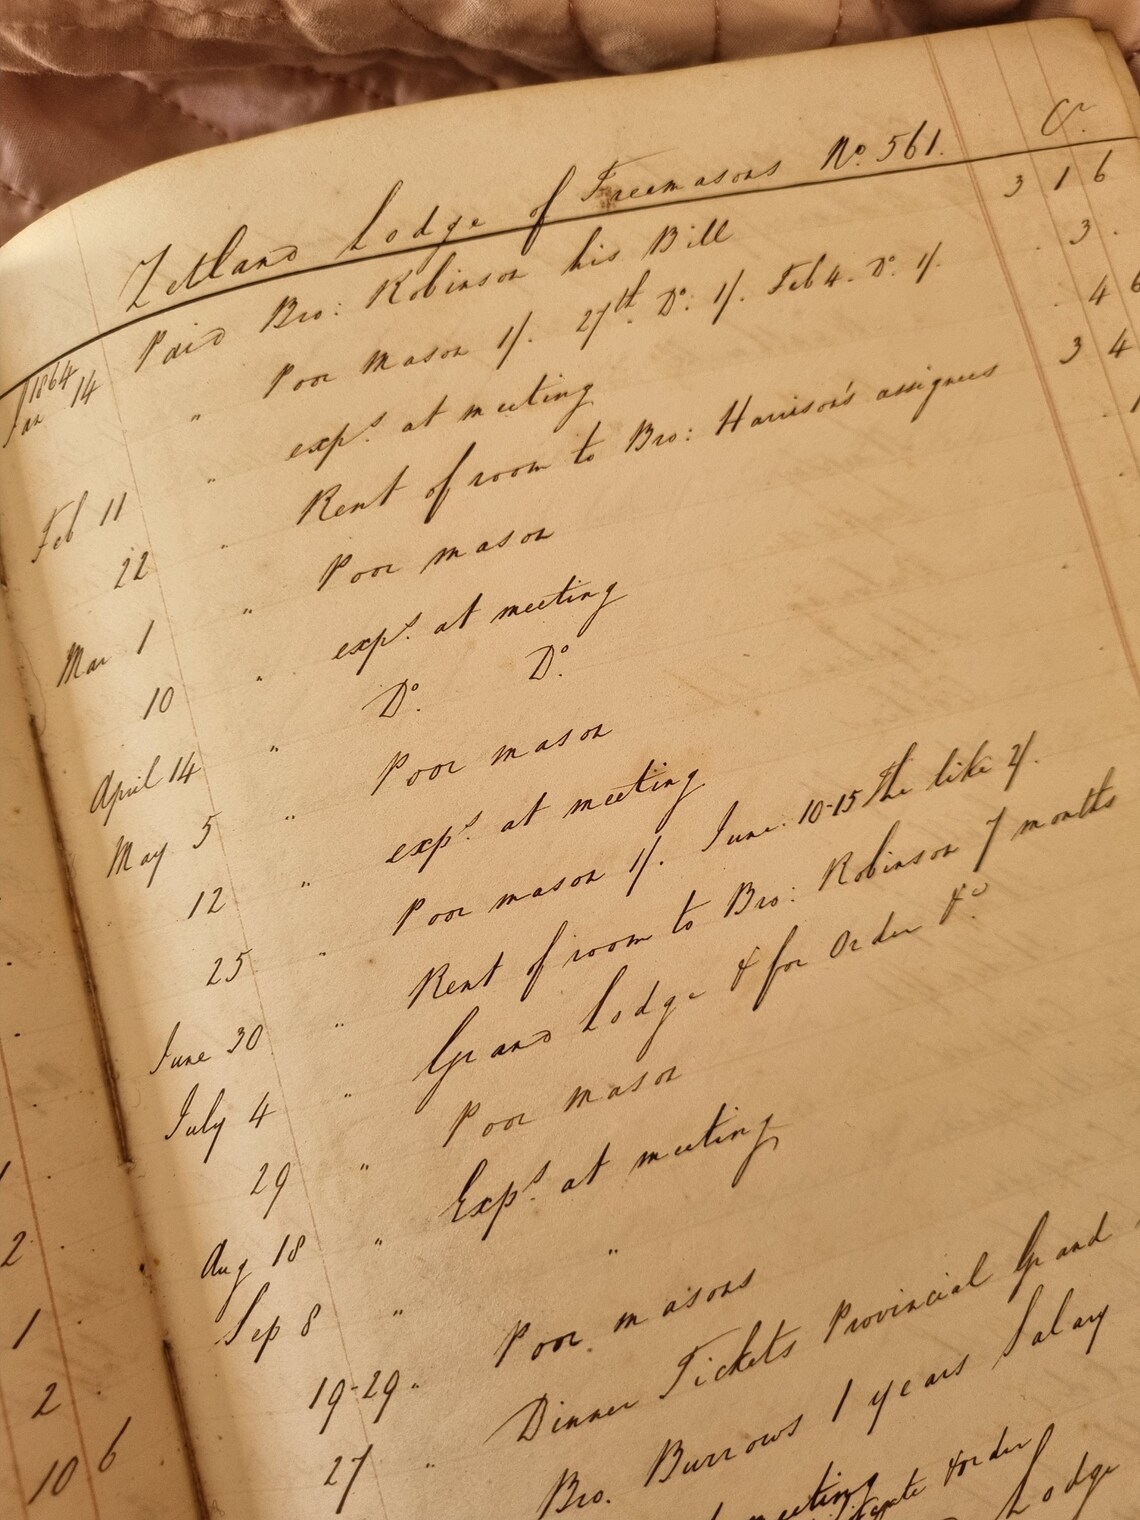 Zetland Lodge of Freemasons No. 561. Cr.
1864
Jan 14 Paid Bro: Robinson his Bill 3 1 6
" Poor Mason 1/. 27th. Do. 1/. Feb 4. Do. 1/. . 3 .
Feb 11 " exps. at meeting . 4 6
22 " Rent of room to Bro: Harrison's assignees 3 4
Mar 1 " Poor mason . 1
10 " exps. at meeting
April 14 " Do. Do.
May 5 " Poor mason
12 " exps. at meeting
25 " Poor mason 1/. June. 10-15 the like 2/.
June 30 " Rent of room to Bro: Robinson 7 months
July 4 " Grand Lodge & for Order &c.
29 " Poor mason
Aug 18 " Exps. at meeting
Sep 8 " "
19-29 " Poor masons
27 " Dinner Tickets Provincial Grand
Bro. Burrows 1 years Salary
meeting
order
Lodge
1
2 .
1 .
2 .
10 6